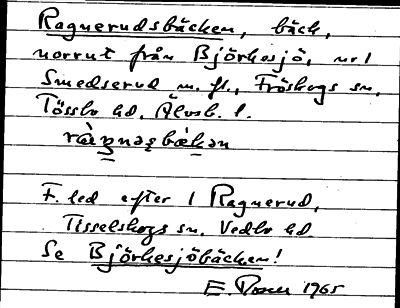 Ragnerudsbäcken, bäck,
norrut från Björkesjö, nr 1
Smedserud m. fl., Fröskogs sn,
Tössbo hd. Älvsb. l.
ràŋnasbäkən
F. led efter 1 Ragnerud,
Tisselskogs sn. Vedbo hd
Se Björkesjöbäcken!
E. 1965